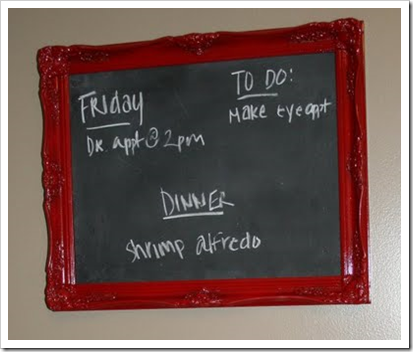 FRiday
DR. appt @ 2pm
TO DO:
Make eye appt
DINNER
shrimp alfredo